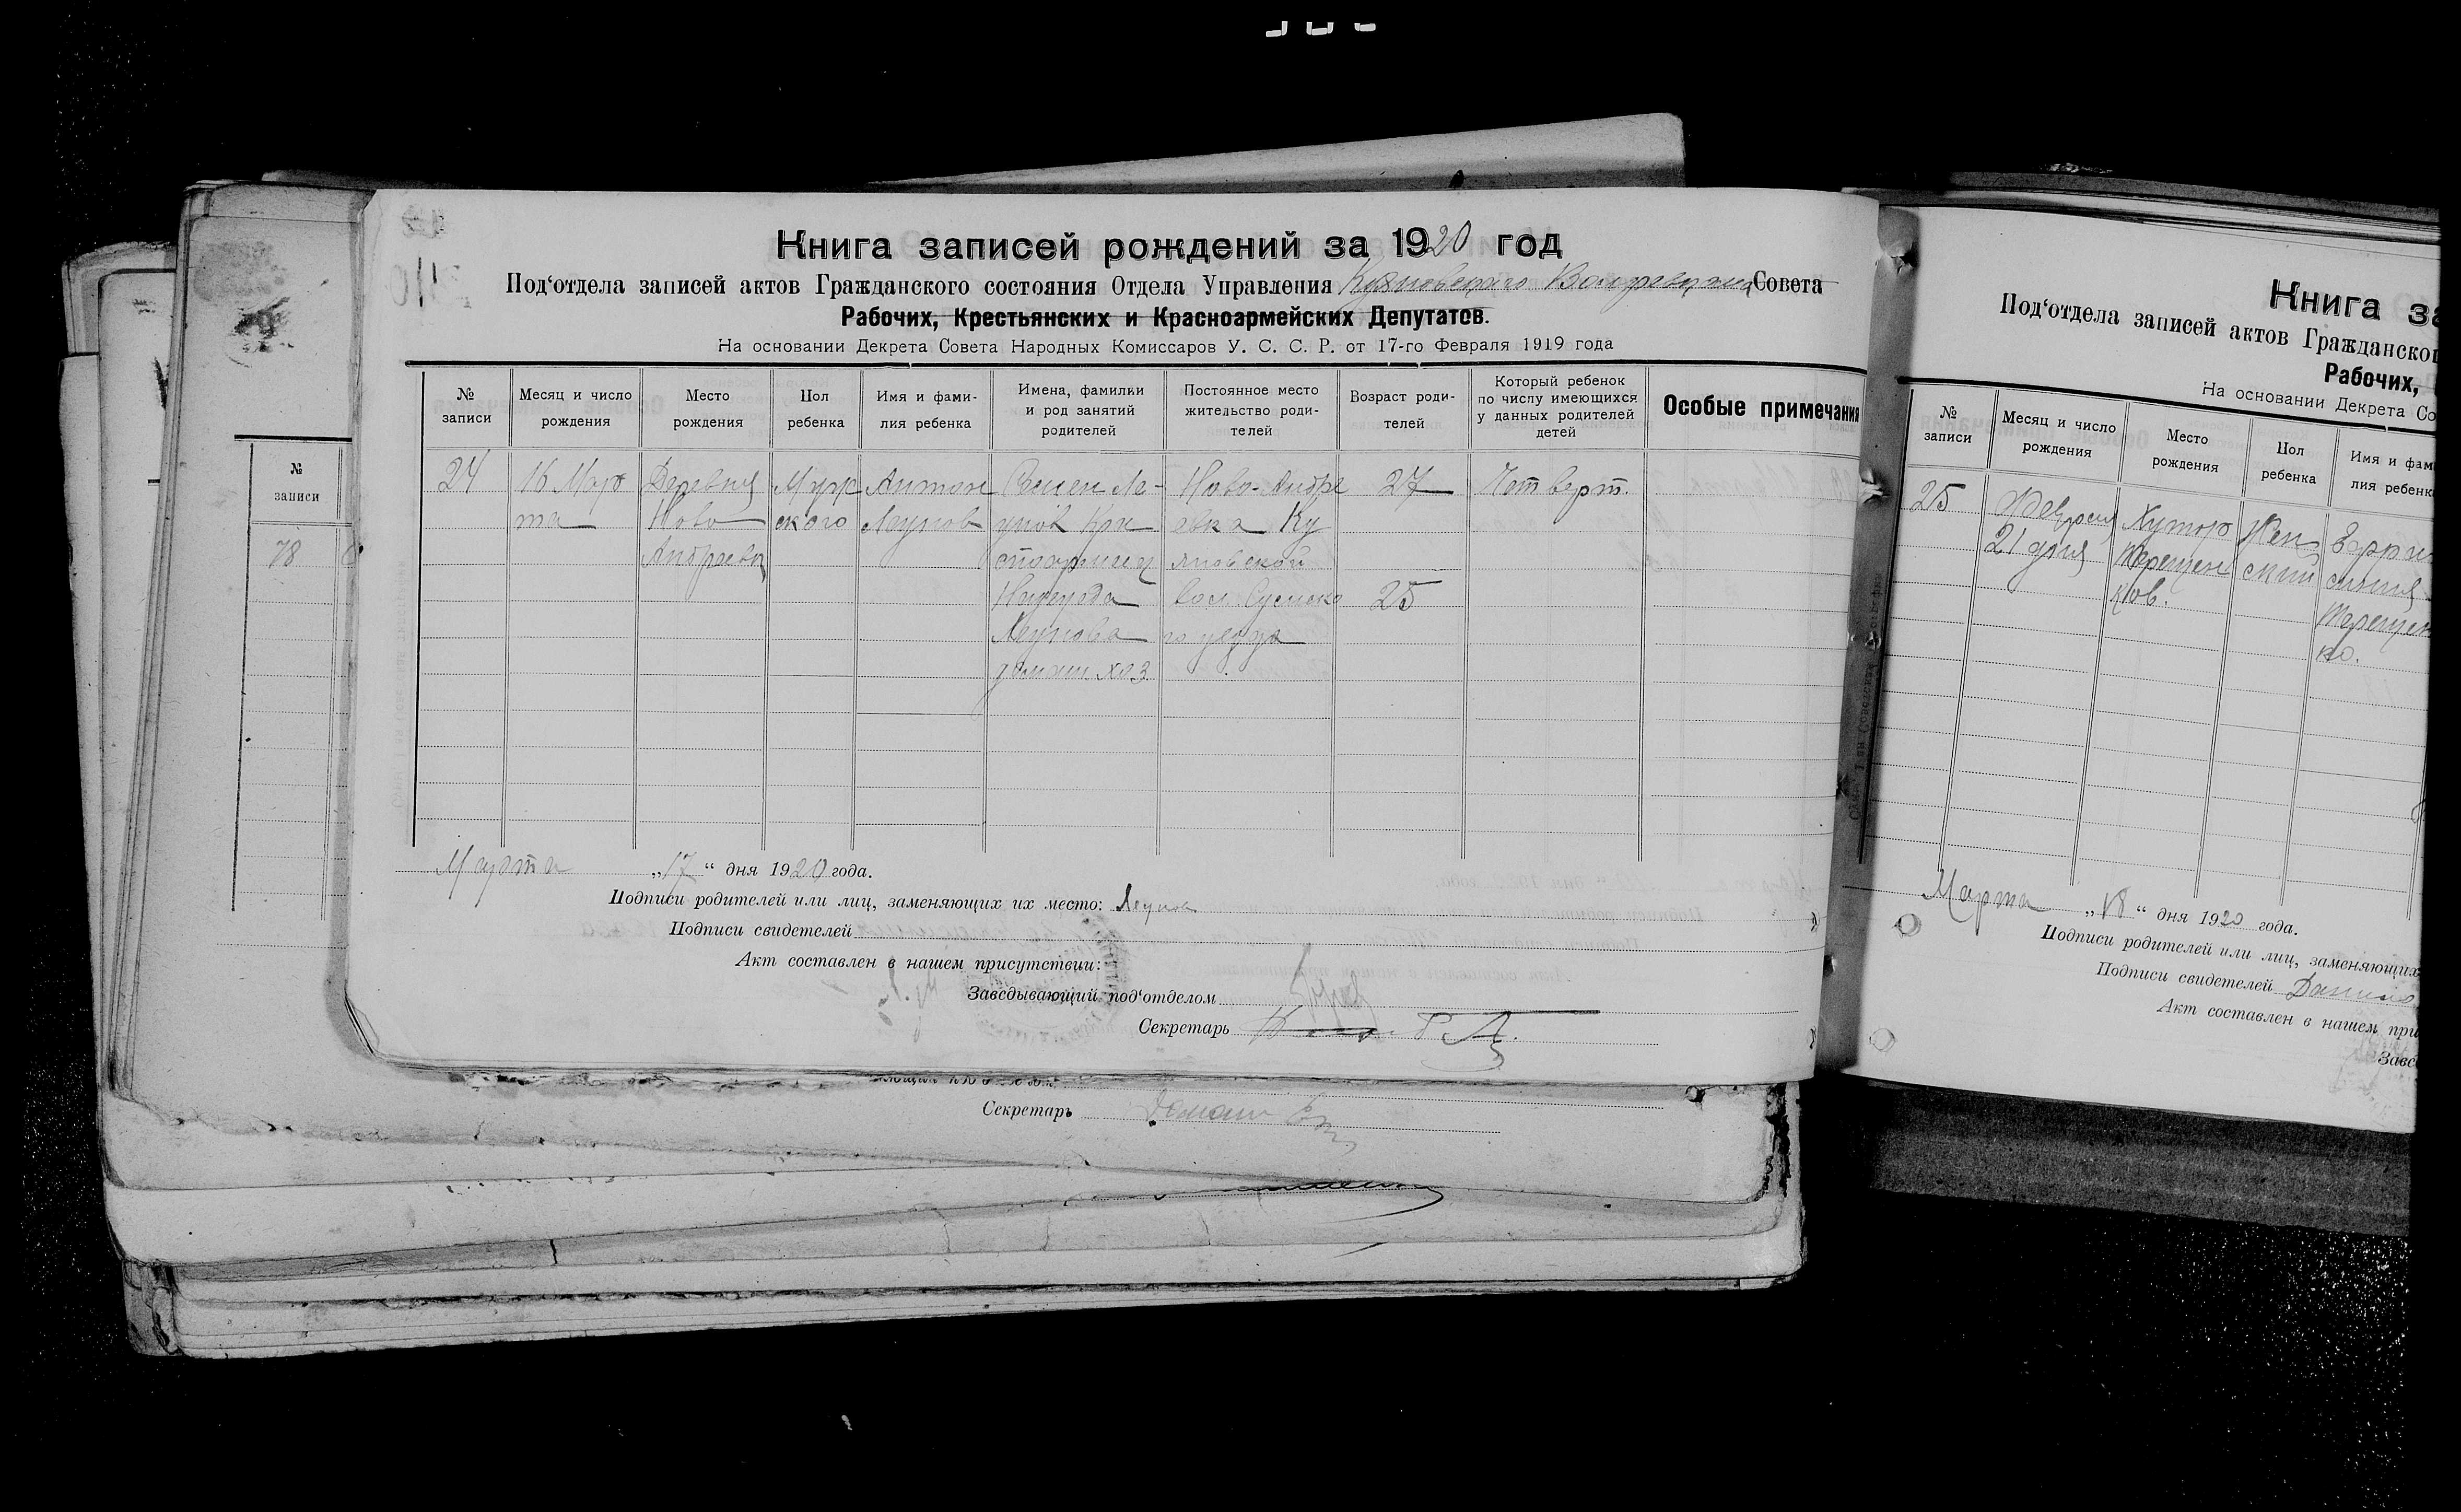 Книга записей рождений за 1920 год
Под‘отдела записей актов Гражданского состояния Отдела Управления Кияновского Волревкома Совета
Рабочих, Крестьянских и Красноармейских Депутатов.
На основании Декрета Совета Народных Комиссаров У. С. С. Р. от 17-го Февраля 1919 года
№ записи
Месяц и число рождения
Место рождения
Пол ребенка
Имя и фами-
лия ребенка
Имена, фамилии
и род занятий
родителей
Постоянное место
жительство роди-
телей
Возраст роди-
телей
Который ребенок
по числу имеющихся
у данных родителей
детей
Особые примечания
24
16 Мар
та
Деревня
Ново
Андреевк
Муж
ского
Антон
Леунов
Семен Ле-
унов
Леунова
домаш. хоз.
Ново-Андре
евка Ку
яновской
вол. Сумско
го уезда
27
25
Четверт.
Марта „17“ дня 1920 года.
Подписи родителей или лиц, заменяющих их место: Леунов
Подписи свидетелей
Акт составлен в нашем присутствии:
Заведывающий под‘отделом
Секретарь
Секретарь
№
записи
78
Книга за
Под‘отдела записей актов Гражданског
Рабочих,
На основании Декрета Со
№
записи
Месяц и число
рождения
Место
рождения
Пол
ребенка
Имя и фам
лия ребенк
25
Февраля
21 дня
Хутор
Терещен
ков.
Жен
ский
Терещен
ко.
Марта „18“ дня 1920 года.
Подписи родителей или лиц, заменяющих
Подписи свидетелей Данило
Акт составлен в нашем при
Заве